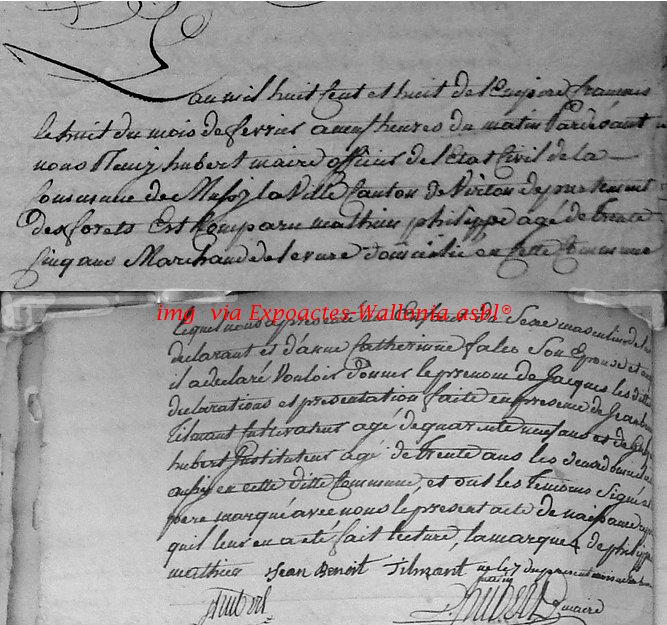 an mil huit Cent et huit de l'Empire francais
le huit du mois de fevrier a neuf heures du matin Pardevant
nous hubert maire officier de l'etat Civil de la
Commune de Mussy la Ville Canton de Virton departement
des forets Est Comparu mathieu philippe agé de trente
Cinq ans Marchand de levure domicilié en cette Commune
img via Expoactes-Wallonia asbl®
lequel nous a presenté un Enfant du Sexe masculin de lui
declarant et d'anne Catherinne Son Epouse et
il a declaré Vouloir donner le prenom de Jacques les dittes
declarations et presentation faite en presence de Jean
Tilmant Cultivateur agé de quarante neuf ans et de
hubert Instituteur agé de trente ans les deux
aussy en cette ditte Commune, et ont les temoins Signé
pere marqué avec nous le present acte de naissance
qu'il leur en a eté fait lecture, la marque de philippe
mathieu Jean Benoit Tilmant né le 7 du present mois
matin
Hubert Hubert maire